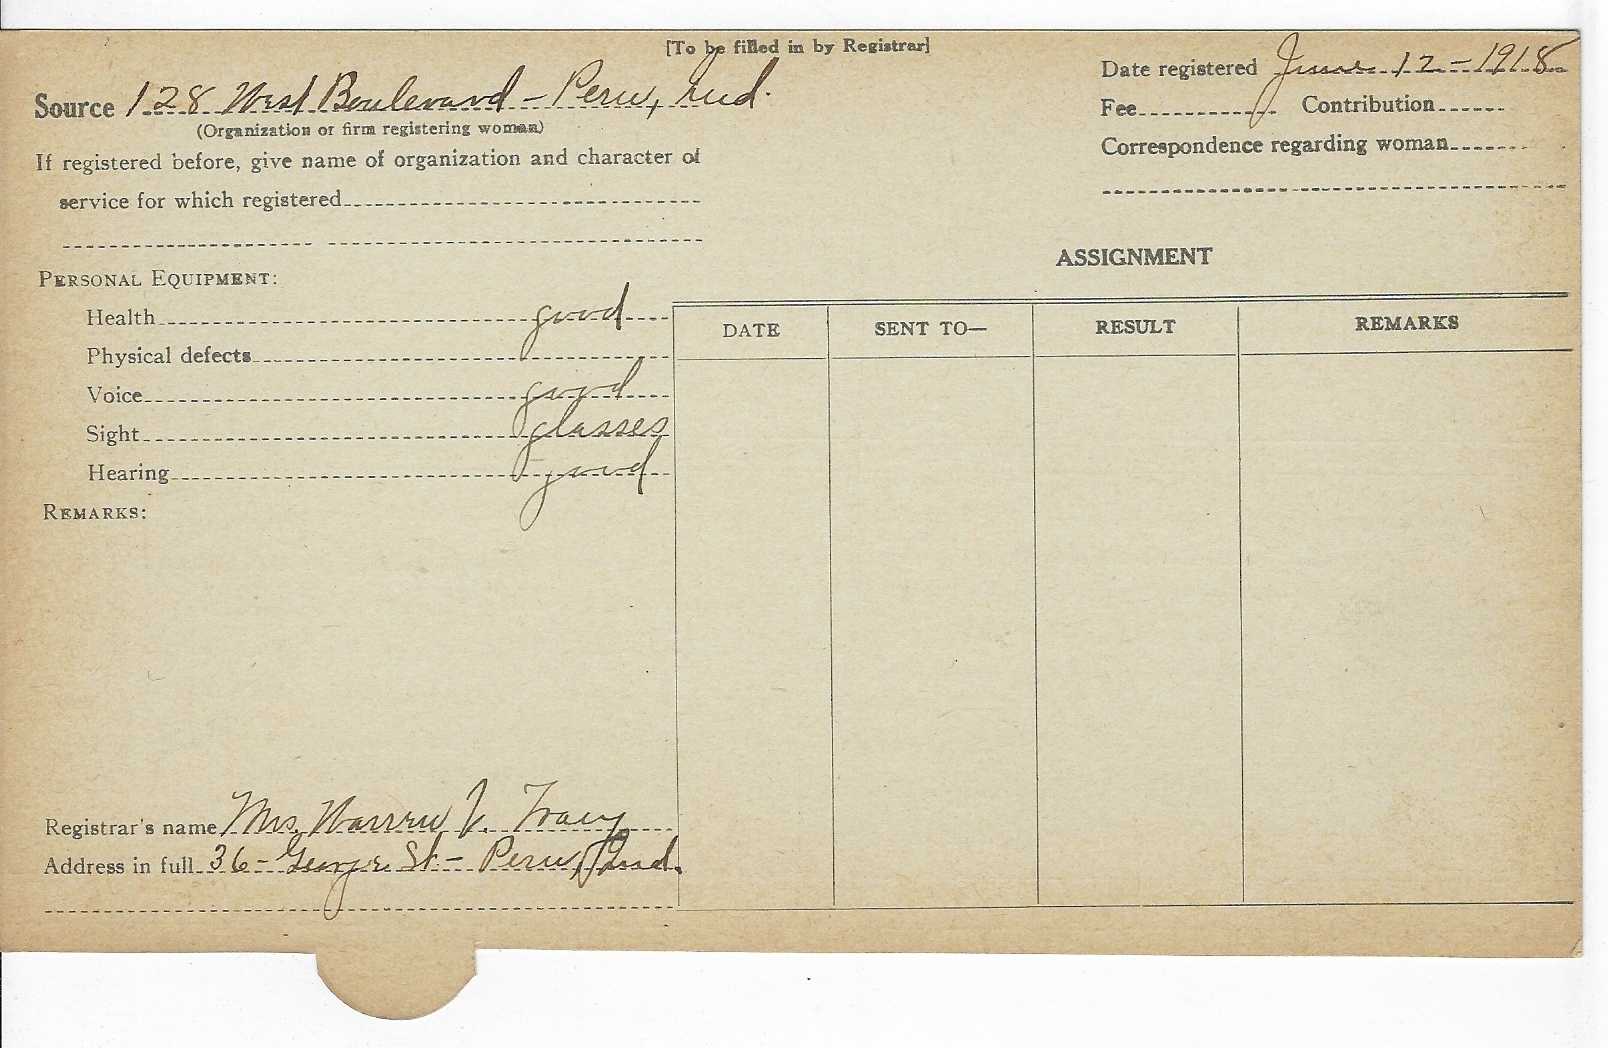 [To be filled in by Registrar]
Source 128 West Boulevard - Peru, Ind.
(Organization or firm registering woman)
If registered before, give name of organization and character of
service for which registered
Date registered June 12 - 1918
Fee Contribution
Correspondence regarding woman
PERSONAL EQUIPMENT:
Health good
Physical defects
Voice good
Sight glasses
Hearing good
REMARKS:
Registrar's name Mrs. Warren V. Tracy
Address in full 36 - George St. - Peru, Ind.
ASSIGNMENT
DATE SENT TO— RESULT REMARKS